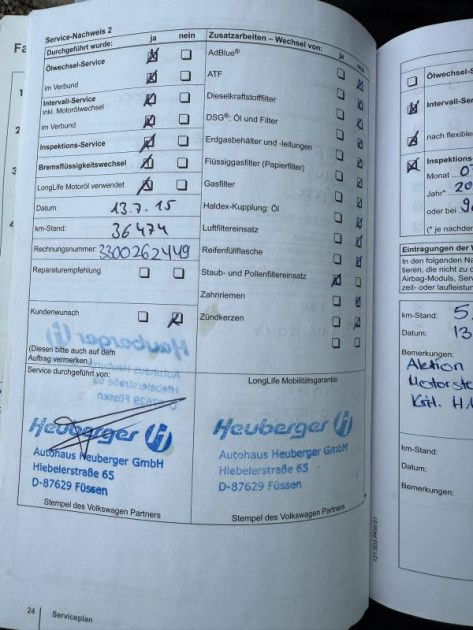 Service-Nachweis 2
Durchgeführt wurde: ja nein
Ölwechsel-Service
im Verbund
Intervall-Service
inkl. Motorölwechsel
im Verbund
Inspektions-Service
Bremsflüssigkeitswechsel
LongLife Motoröl verwendet
Datum: 13.7.15
km-Stand: 36474
Rechnungsnummer: 3300262449
Reparaturempfehlung
Kundenwunsch
(Diesen bitte auch auf dem
Auftrag vermerken.)
Service durchgeführt von:
Heuberger
Autohaus Heuberger GmbH
Hiebelerstraße 65
D-87629 Füssen
Stempel des Volkswagen Partners
Zusatzarbeiten – Wechsel von: ja
AdBlue®
ATF
Dieselkraftstofffilter
DSG®: Öl und Filter
Erdgasbehälter und -leitungen
Flüssiggasfilter (Papierfilter)
Gasfilter
Haldex-Kupplung: Öl
Luftfiltereinsatz
Reifenfüllflasche
Staub- und Pollenfiltereinsatz
Zahnriemen
Zündkerzen
LongLife Mobilitätsgarantie:
Heuberger
Autohaus Heuberger GmbH
Hiebelerstraße 65
D-87629 Füssen
Stempel des Volkswagen Partners
24 Serviceplan
Ölwechsel-Ser
Intervall-Serv
nach flexible
Inspektions
Monat
Jahr* 20
oder bei
(* je nachde
Eintragungen der W
In den folgenden Na
tieren, die nicht zu d
Airbag-Moduls, Serv
zeit- oder laufleistun
km-Stand: 5
Datum: 13
Bemerkungen:
Aktion
Motorste
km-Stand:
Datum:
Bemerkungen: